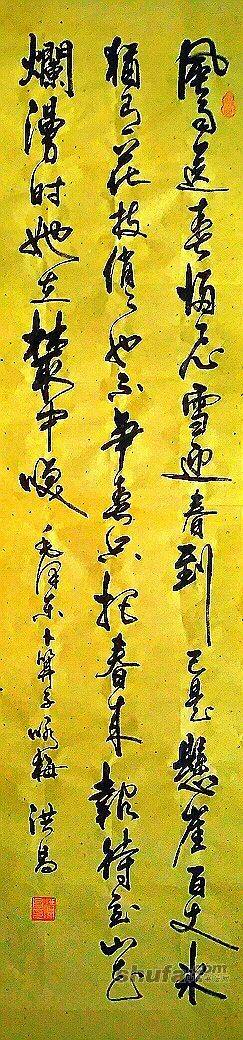 風雨送春归飞雪迎春到已是懸崖百丈冰
猶有花枝俏俏也不争春只把春来報待到山花
爛漫时她在叢中咲毛泽东卜算子咏梅洪